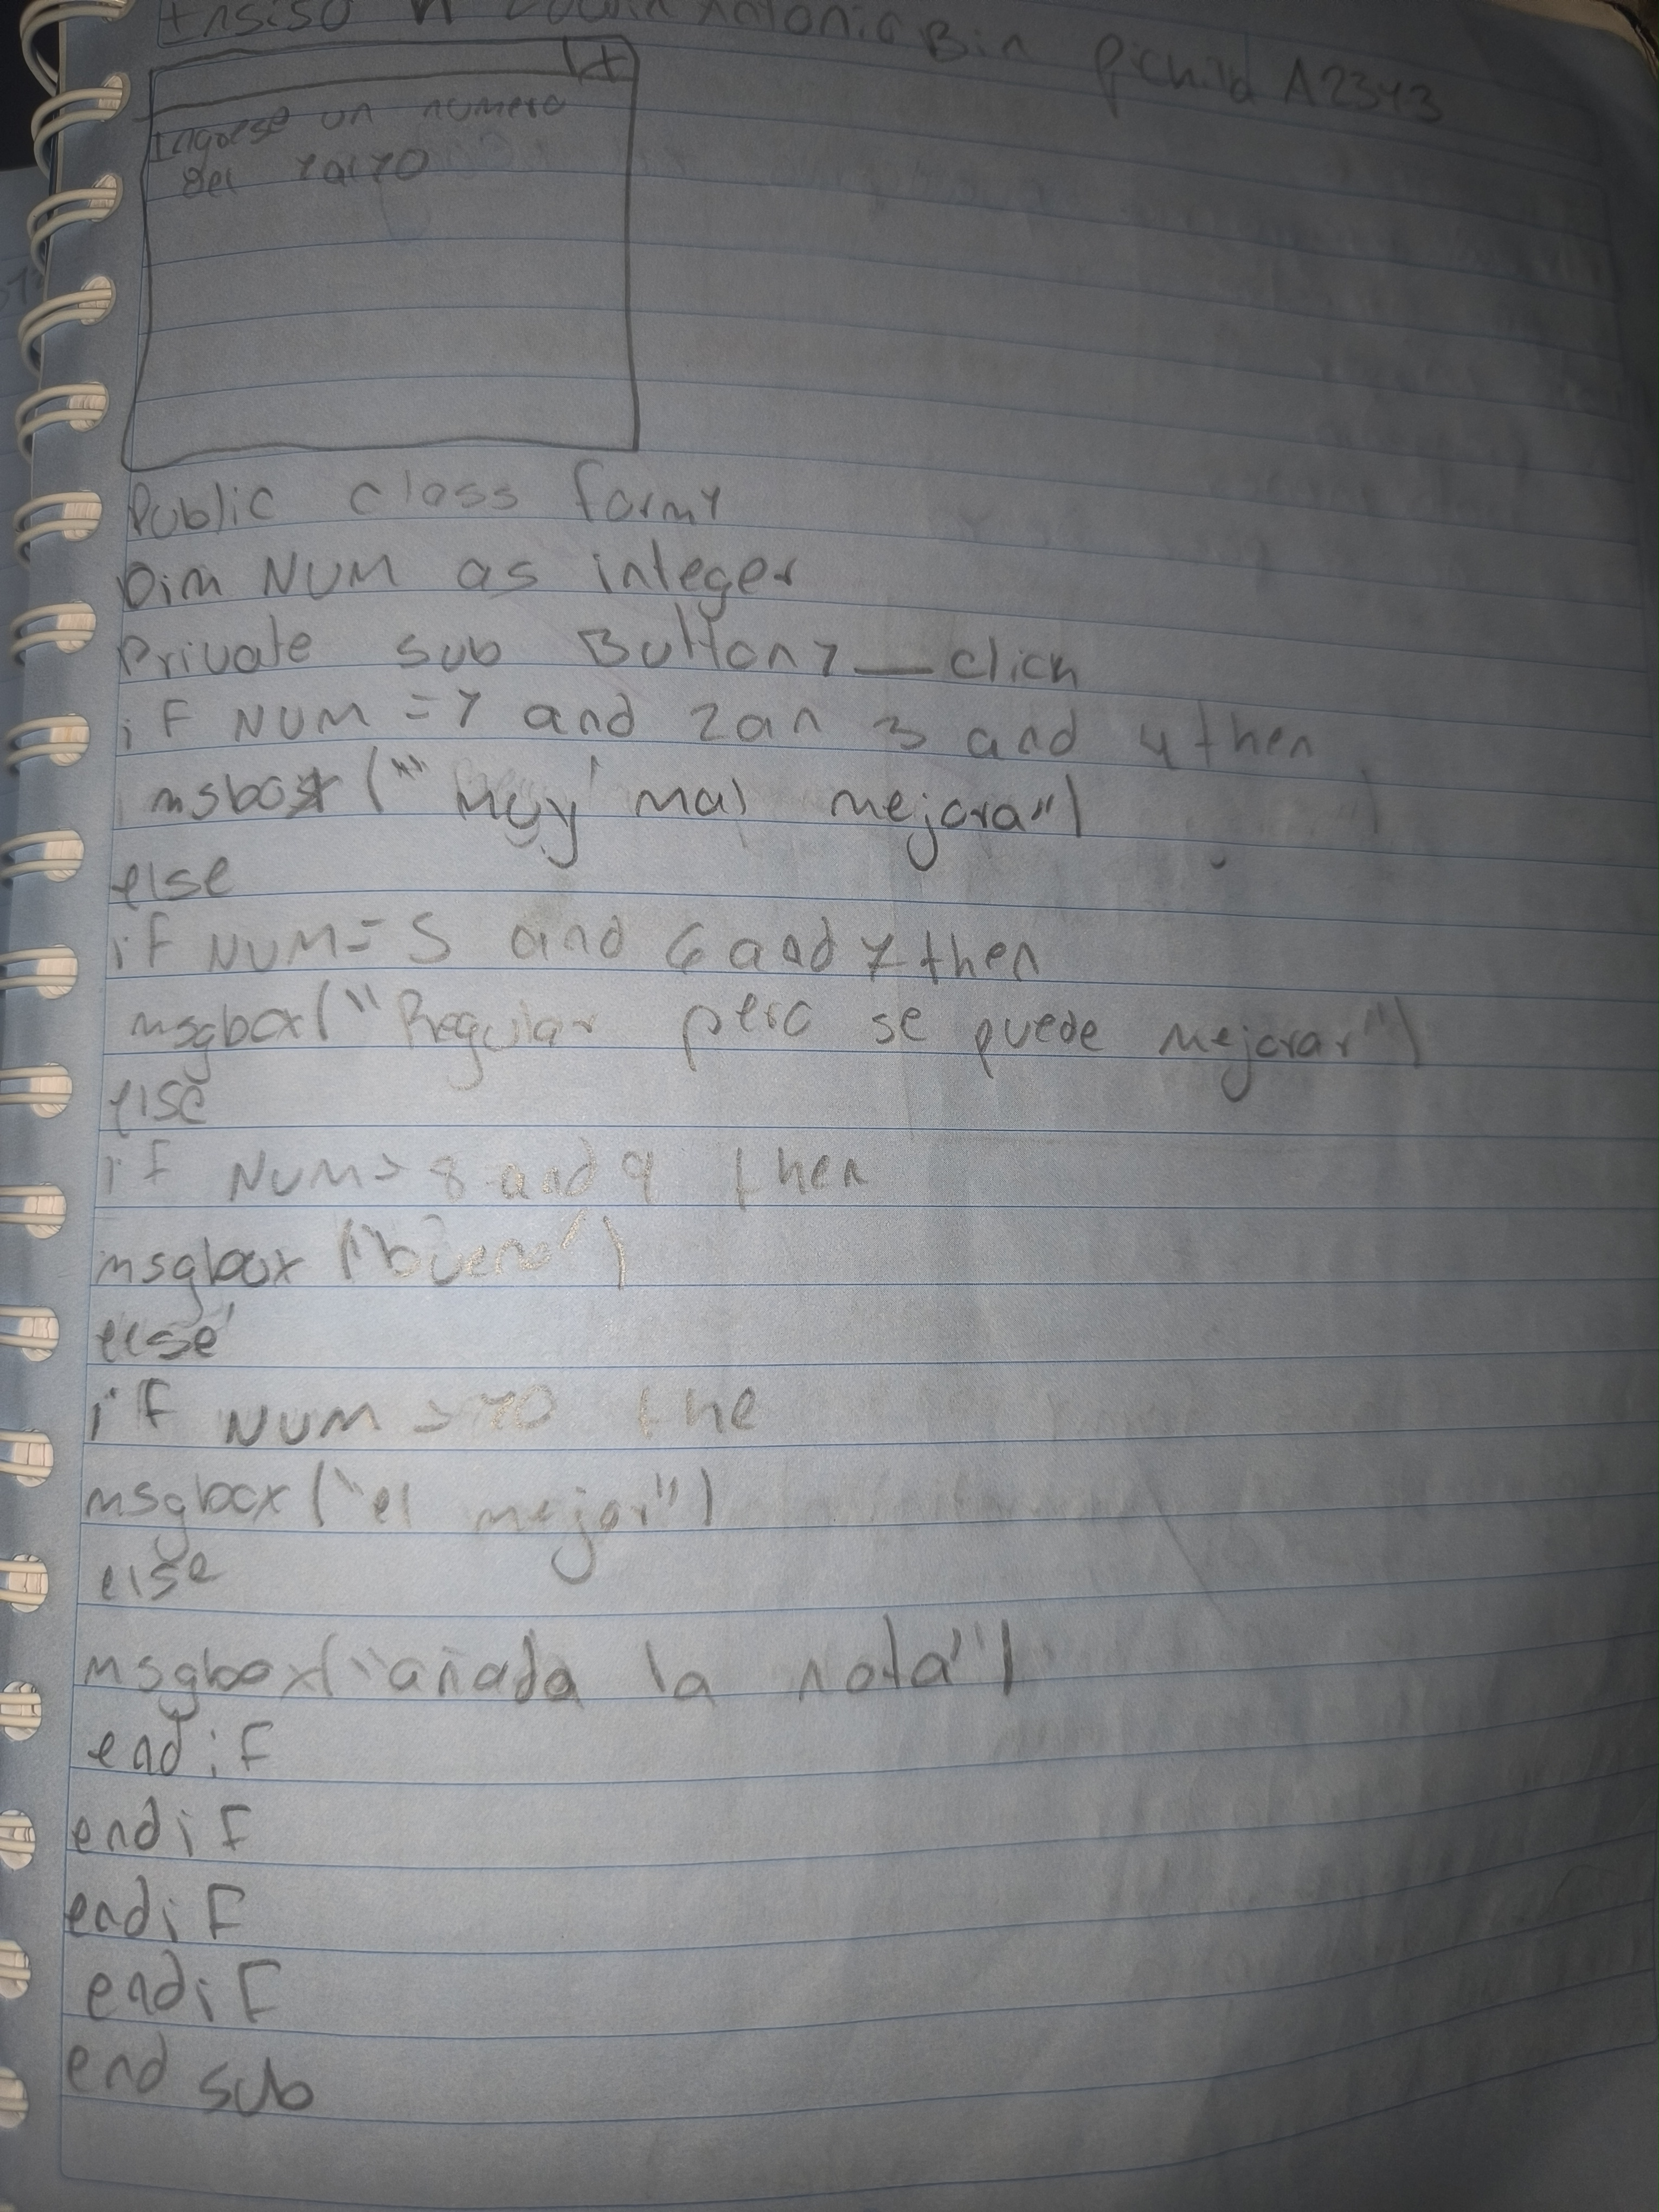 Antonio Bin A2343
Ingrese un numero
del 1 al 10
Public class form1
Dim NUM as integer
Private sub Button1_click
if NUM =1 and 2 an 3 and 4 then
msbox ("Muy mal mejora")
else
if NUM= 5 and 6 and 7 then
msgbox("Regular pero se puede mejorar")
else
if NUM= 8 and 9 then
msgbox ("bueno")
else
if NUM = 10 the
msgbox ("el mejor")
else
msgbox("añada la nota")
end if
end if
end if
end if
end sub